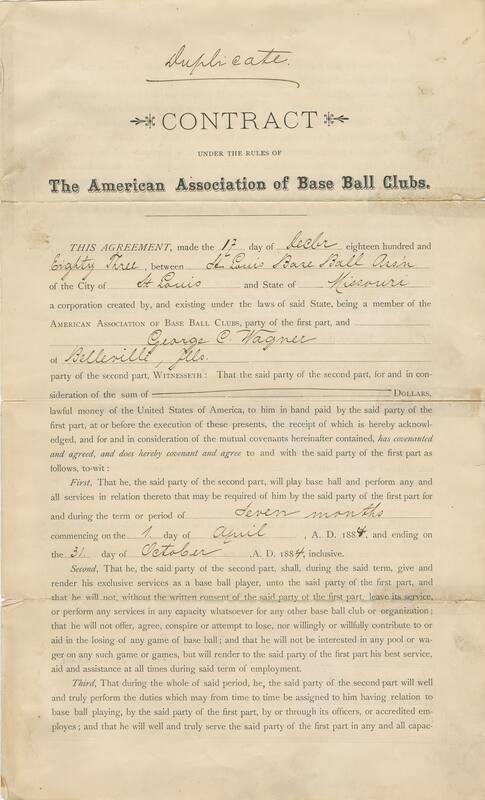 Duplicate.
CONTRACT
UNDER THE RULES OF
The American Association of Base Ball Clubs.
THIS AGREEMENT, made the 17 day of Decbr eighteen hundred and
Eighty Three, between St Louis Base Ball Ass'n
of the City of St Louis and State of Missouri
a corporation created by, and existing under the laws of said State, being a member of the
AMERICAN ASSOCIATION OF BASE BALL CLUBS, party of the first part, and
George C. Wagner
of Belleville, Ills.
party of the second part, WITNESSETH: That the said party of the second part, for and in con-
sideration of the sum of DOLLARS,
lawful money of the United States of America, to him in hand paid by the said party of the
first part, at or before the execution of these presents, the receipt of which is hereby acknowl-
edged, and for and in consideration of the mutual covenants hereinafter contained, has covenanted
and agreed, and does hereby covenant and agree to and with the said party of the first part as
follows, to-wit:
First, That he, the said party of the second part, will play base ball and perform any and
all services in relation thereto that may be required of him by the said party of the first part for
and during the term or period of Seven months
commencing on the 1. day of April, A. D. 1884, and ending on
the 31. day of October, A. D. 1884, inclusive.
Second, That he, the said party of the second part, shall, during the said term, give and
render his exclusive services as a base ball player, unto the said party of the first part, and
that he will not, without the written consent of the said party of the first part, leave its service,
or perform any services in any capacity whatsoever for any other base ball club or organization;
that he will not offer, agree, conspire or attempt to lose, nor willingly or willfully contribute to or
aid in the losing of any game of base ball; and that he will not be interested in any pool or wa-
ger on any such game or games, but will render to the said party of the first part his best service,
aid and assistance at all times during said term of employment.
Third, That during the whole of said period, he, the said party of the second part will well
and truly perform the duties which may from time to time be assigned to him having relation to
base ball playing, by the said party of the first part, by or through its officers, or accredited em-
ployes; and that he will well and truly serve the said party of the first part in any and all capac-